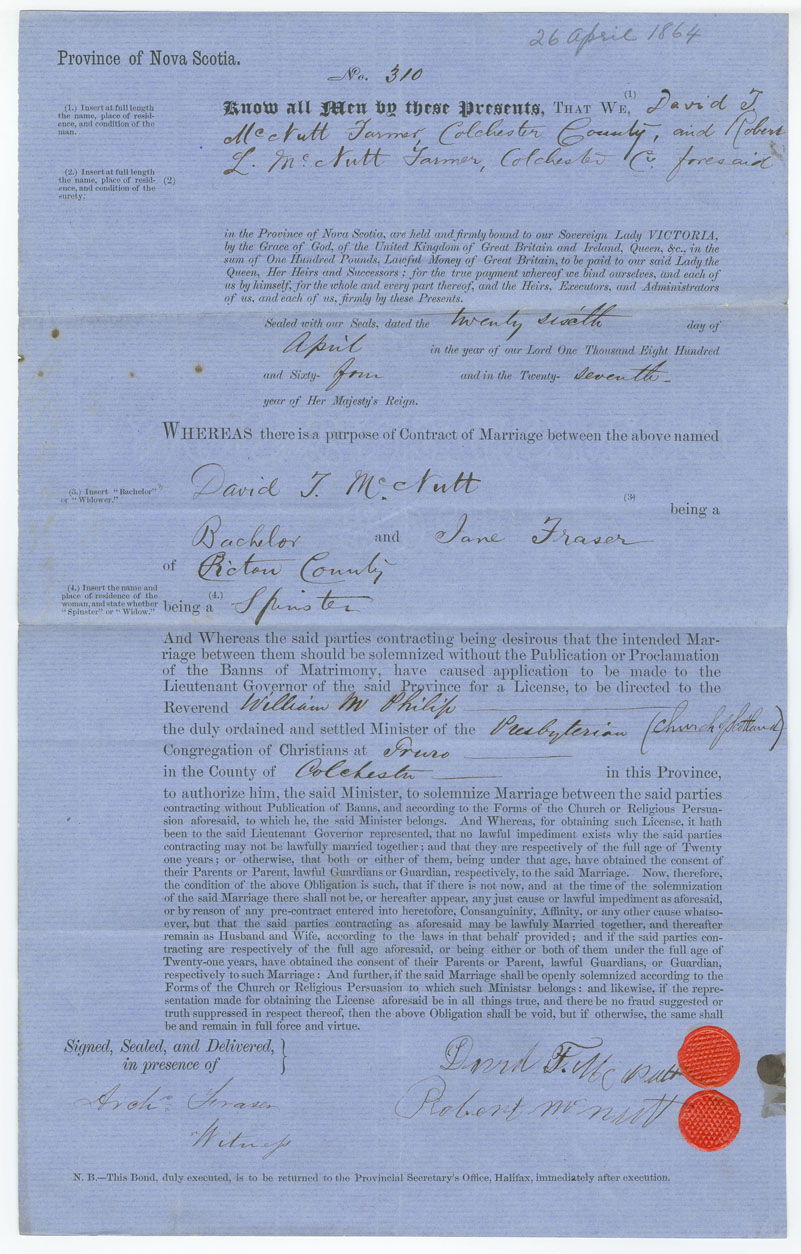 26 April 1864
Province of Nova Scotia.
No. 310
(1.) Insert at full length
the name, place of resid-
ence, and condition of the
man.
Know all Men by these Presents, THAT WE, (1) David T.
McNutt Farmer, Colchester County, and Robert
(2.) Insert at full length
the name, place of resid-
ence, and condition of the
surety.
(2) L. McNutt Farmer, Colchester Co. foresaid
in the Province of Nova Scotia, are held and firmly bound to our Sovereign Lady VICTORIA,
by the Grace of God, of the United Kingdom of Great Britain and Ireland, Queen, &c., in the
sum of One Hundred Pounds, Lawful Money of Great Britain, to be paid to our said Lady the
Queen, Her Heirs and Successors; for the true payment whereof we bind ourselves, and each of
us by himself, for the whole and every part thereof, and the Heirs, Executors, and Administrators
of us, and each of us, firmly by these Presents.
Sealed with our Seals, dated the twenty sixth day of
April in the year of our Lord One Thousand Eight Hundred
and Sixty- four and in the Twenty- seventh
year of Her Majesty's Reign.
WHEREAS there is a purpose of Contract of Marriage between the above named
(3.) Insert "Bachelor"
or "Widower."
David T. McNutt (3) being a
Bachelor and Jane Fraser
of Pictou County
(4.) Insert the name and
place of residence of the
woman, and state whether
"Spinster" or "Widow."
being a (4.) Spinster
And Whereas the said parties contracting being desirous that the intended Mar-
riage between them should be solemnized without the Publication or Proclamation
of the Banns of Matrimony, have caused application to be made to the
Lieutenant Governor of the said Province for a License, to be directed to the
Reverend William M Philip
the duly ordained and settled Minister of the Presbyterian (Church of Scotland)
Congregation of Christians at Truro
in the County of Colchester in this Province,
to authorize him, the said Minister, to solemnize Marriage between the said parties
contracting without Publication of Banns, and according to the Forms of the Church or Religious Persua-
sion aforesaid, to which he, the said Minister belongs. And Whereas, for obtaining such License, it hath
been to the said Lieutenant Governor represented, that no lawful impediment exists why the said parties
contracting may not be lawfully married together; and that they are respectively of the full age of Twenty
one years; or otherwise, that both or either of them, being under that age, have obtained the consent of
their Parents or Parent, lawful Guardians or Guardian, respectively, to the said Marriage. Now, therefore,
the condition of the above Obligation is such, that if there is not now, and at the time of the solemnization
of the said Marriage there shall not be, or hereafter appear, any just cause or lawful impediment as aforesaid,
or by reason of any pre-contract entered into heretofore, Consanguinity, Affinity, or any other cause whatso-
ever, but that the said parties contracting as aforesaid may be lawfuly Married together, and thereafter
remain as Husband and Wife, according to the laws in that behalf provided; and if the said parties con-
tracting are respectively of the full age aforesaid, or being either or both of them under the full age of
Twenty-one years, have obtained the consent of their Parents or Parent, lawful Guardians, or Guardian,
respectively to such Marriage: And further, if the said Marriage shall be openly solemnized according to the
Forms of the Church or Religious Persuasion to which such Minister belongs: and likewise, if the repre-
sentation made for obtaining the License aforesaid be in all things true, and there be no fraud suggested or
truth suppressed in respect thereof, then the above Obligation shall be void, but if otherwise, the same shall
be and remain in full force and virtue.
Signed, Sealed, and Delivered, }
in presence of
David T. McNutt
Archd. Fraser
Robert McNutt
Witness
N. B.—This Bond, duly executed, is to be returned to the Provincial Secretary's Office, Halifax, immediately after execution.